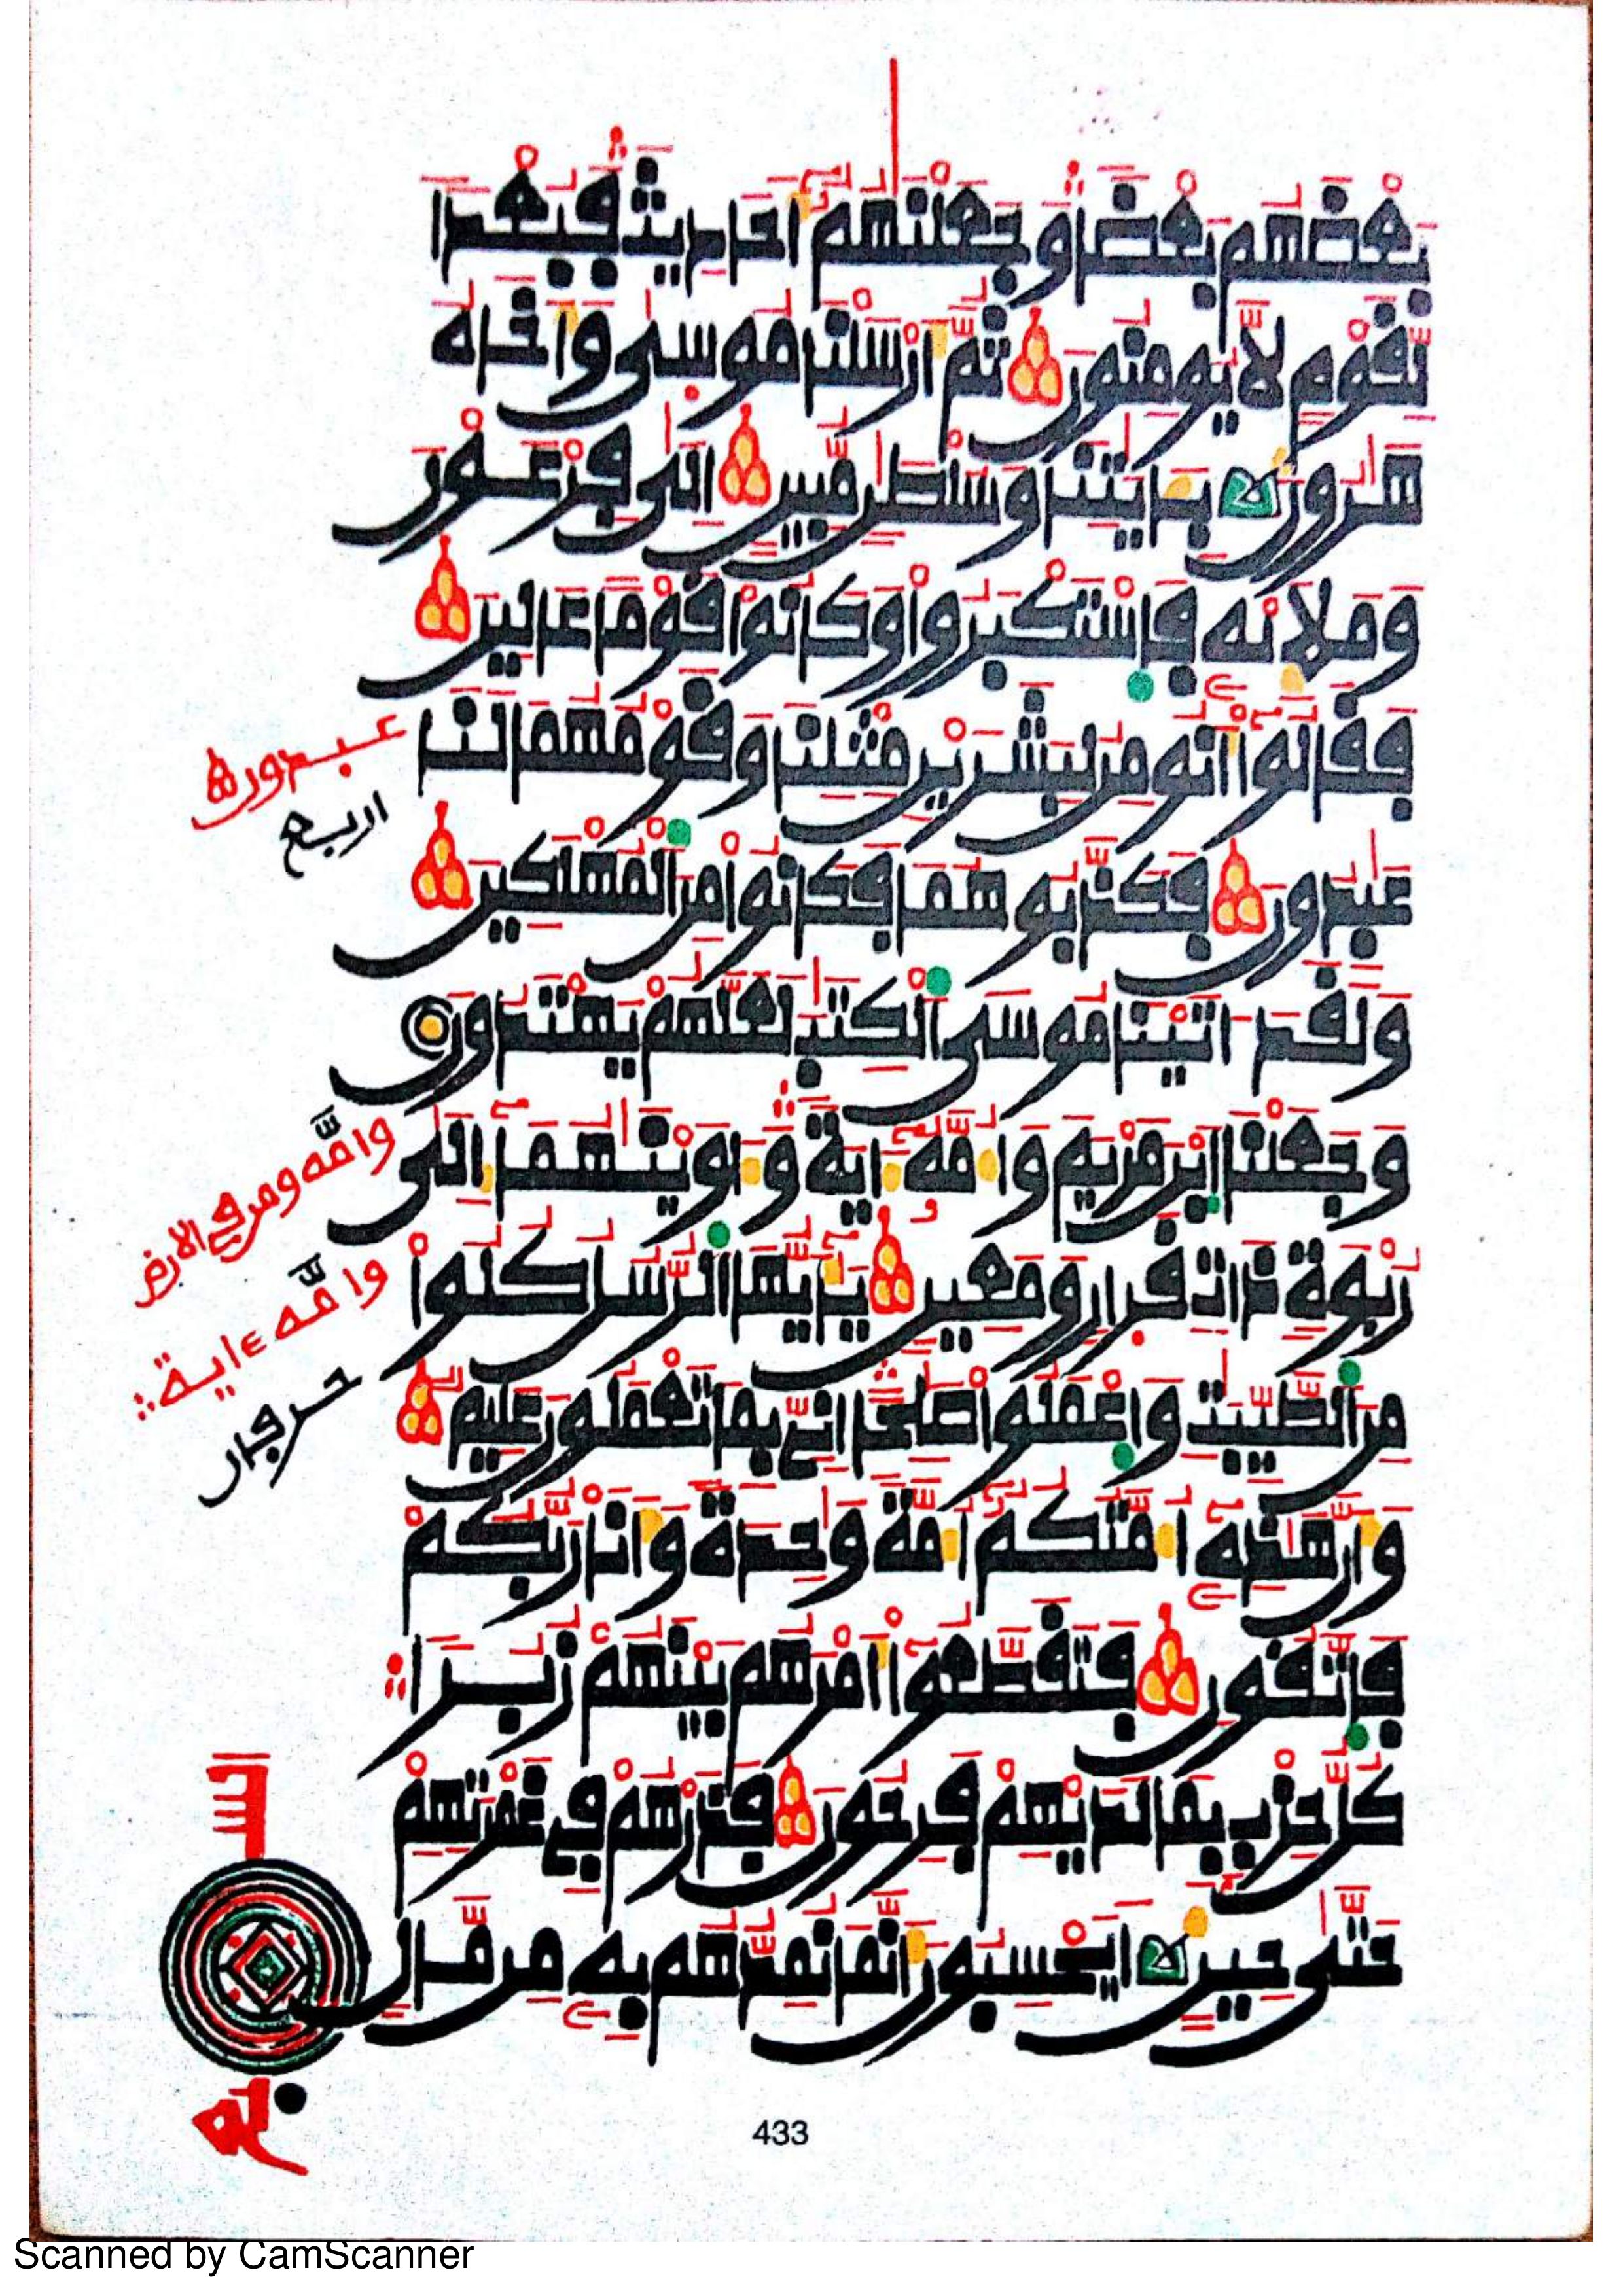 بَعْضَهُم بَعْضًا وَجَعَلْنَٰهُمُۥٓ أَحَادِيثَ فَبُعْدًا
لِّقَوْمٍ لَّا يُومِنُونَ ثُمَّ أَرْسَلْنَا مُوسِىٰ وَأَخَاهُ
هَٰرُونَ بِـَٔايَٰتِنَا وَسُلْطَٰنٍ مُّبِينٍ إِلَىٰ فِرْعَوْنَ
وَمَلَإِيْهِۦ فَاسْتَكْبَرُواْ وَكَانُواْ قَوْمًا عَالِينَ
فَقَالُوٓاْ أَنُومِنُ لِبَشَرَيْنِ مِثْلِنَا وَقَوْمُهُمَا لَنَا
عَٰبِدُونَ فَكَذَّبُوهُمَا فَكَانُواْ مِنَ ٱلْمُهْلَكِينَ
وَلَقَدَ اتَيْنَا مُوسَى ٱلْكِتَٰبَ لَعَلَّهُمْ يَهْتَدُونَ
وَجَعَلْنَا ٱبْنَ مَرْيَمَ وَأُمَّهُۥٓ ءَايَةً وَءَاوَيْنَٰهُمَآ إِلَىٰ
رُبْوَةٍ ذَاتِ قَرَارٍ وَمَعِينٍ يَٰٓأَيُّهَا ٱلرُّسُلُ كُلُواْ
مِنَ ٱلطَّيِّبَٰتِ وَٱعْمَلُواْ صَٰلِحًا إِنِّي بِمَا تَعْمَلُونَ عَلِيمٌ
وَأَنَّ هَٰذِهِۦٓ أُمَّتُكُمُۥٓ أُمَّةً وَٰحِدَةً وَأَنَا رَبُّكُمْ
فَاتَّقُونِ فَتَقَطَّعُوٓاْ أَمْرَهُم بَيْنَهُمْ زُبُرًا
كُلُّ حِزْبٍ بِمَا لَدَيْهِمْ فَرِحُونَ فَذَرْهُمْ فِي غَمْرَتِهِمْ
حَتَّىٰ حِينٍ أَيَحْسِبُونَ أَنَّمَا نُمِدُّهُم بِهِۦ مِن مَّالٍ
عبدون
اربع
وامّه ومن في الارض
وامّه ءاية
حرفان
433
Scanned by CamScanner